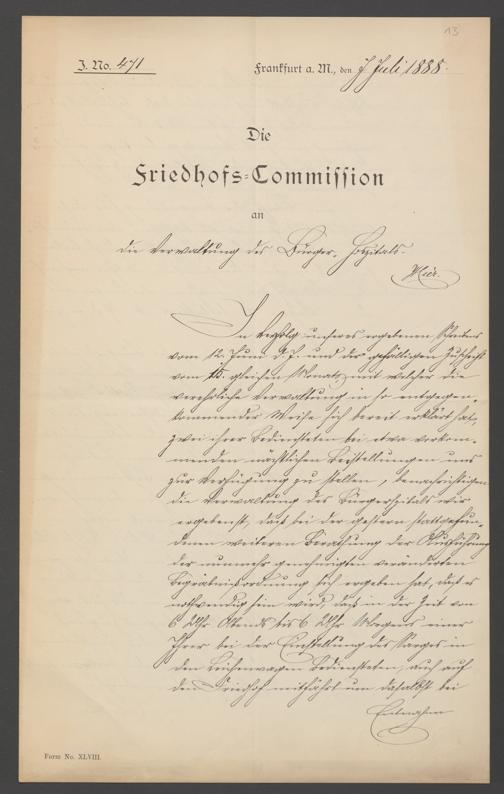 13
J. No. 471
Frankfurt a. M., den 7 Juli 1888.
Die
Friedhofs-Commission
an
die Verwaltung des Bürger-Hospitals.
Hier.
In Verfolg unseres ergebenen Schreibens
vom 12. Juni d. J. und der gefälligen Zuschrift
vom 15. gleichen Monats, mit welcher die
verehrliche Verwaltung in so entgegen-
kommender Weise sich bereit erklärt hat,
zwei ihrer Bediensteten bei etwa vorkom-
menden nächtlichen Beistellungen uns
zur Verfügung zu stellen, benachrichtigen
die Verwaltung des Bürgerspitals wir
ergebenst, daß bei der gestern stattgefun-
denen weiteren Berathung der Ausführung
der nunmehr genehmigten veränderten
Begräbnißordnung sich ergeben hat, daß es
nothwendig sein wird, daß in der Zeit von
6 Uhr Abends bis 6 Uhr Morgens einer
Ihrer bei der Einstellung des Sarges in
den Leichenwagen Bediensteten, auch auf
den Friedhof mitfährt um daselbst bei
Form No. XLVIII.